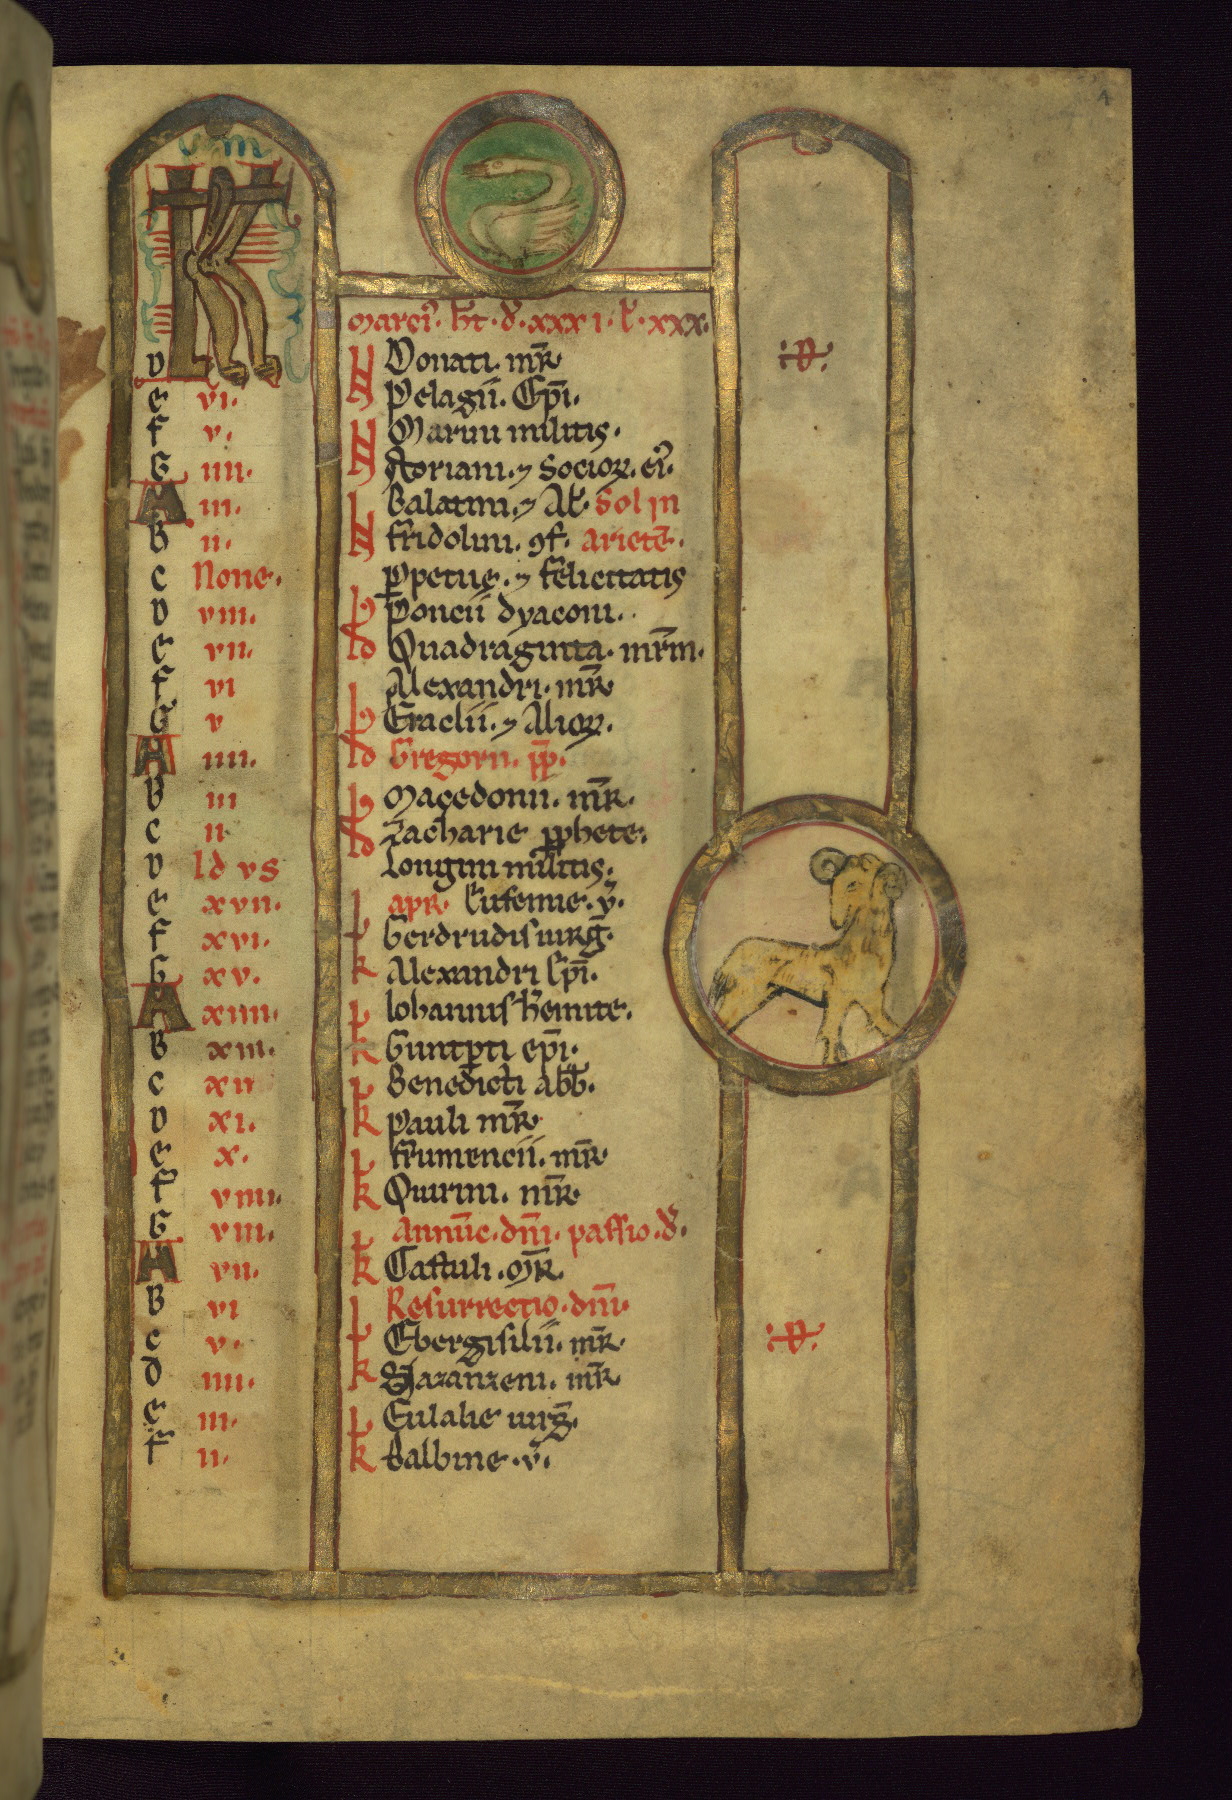 4
m
KL
Marcī. h̄t. d. xxxi. l. xxx.
D Donati. mr̄
E vi. N Pelagii. Ep̄i.
F v. Marini militis.
G iiii. N Floriani. ⁊ Socioꝝ. eī.
A iii. Balatini. ⁊ Al'. Sol in
B ii. N fridolini. ꝯf. arietē.
C None. P̱petue. ⁊ felicitatis
D viii. Poncii dyaconi.
E vii. Id Quadraginta. mr̄m.
F vi Alexandri. mr̄
G v Eraclii. ⁊ Alioꝝ.
A iiii. Id Gregorii. pp̄.
B iii Macedonii. mr̄.
C ii Id Zacharie ꝓphete.
D Idvs Longini militis.
E xvii. apr̄. Eufemie. v̄.
F xvi. Gerdrudis uirḡ.
G xv. k Alexandri Ep̄i.
A xiiii. Iohannis h̄emite.
B xiii. k Guntp̱ti ep̄i.
C xii Benedicti abb̄.
D xi. k Pauli mr̄
E x. frumencii. mr̄
F viiii. k Quirini. mr̄
G viii. Annūc. dn̄i. passio. d.
A vii. k Castuli. Mr̄.
B vi Resurrectio. dn̄i.
C v. Ebergisilii. mr̄.
D iiii. k Nazanzeni. mr̄
E iii. Eulalie uirḡ.
F ii. k Balbine. v̄.
:D.
:D.